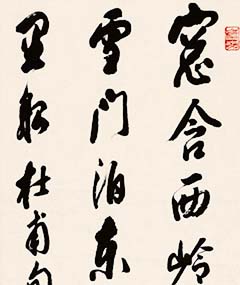 窗含西岭
雪门泊東
里船杜甫句